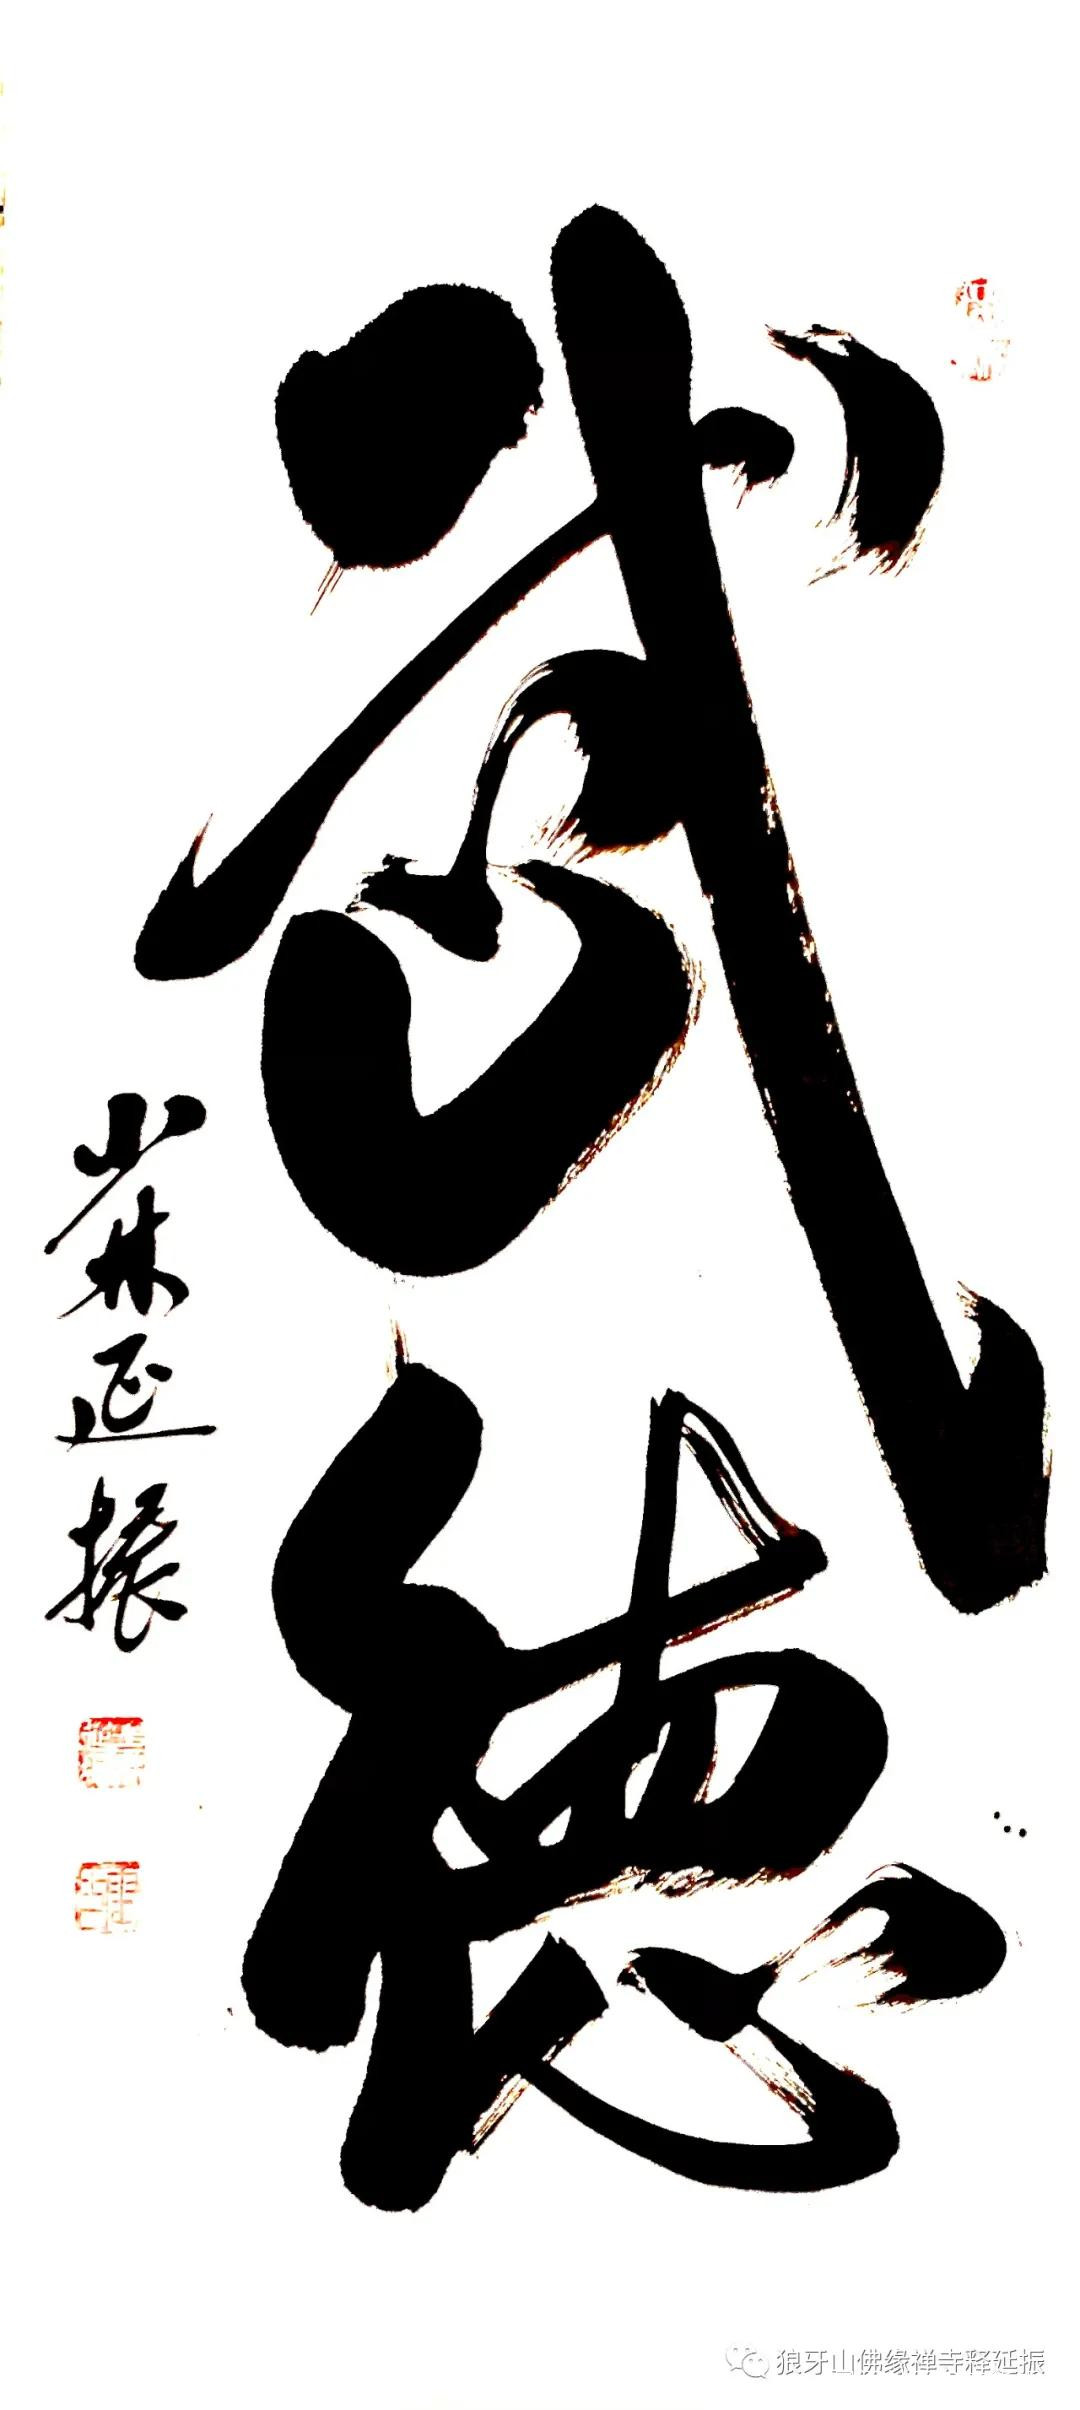 武德
少林延振
狼牙山佛缘禅寺释延振